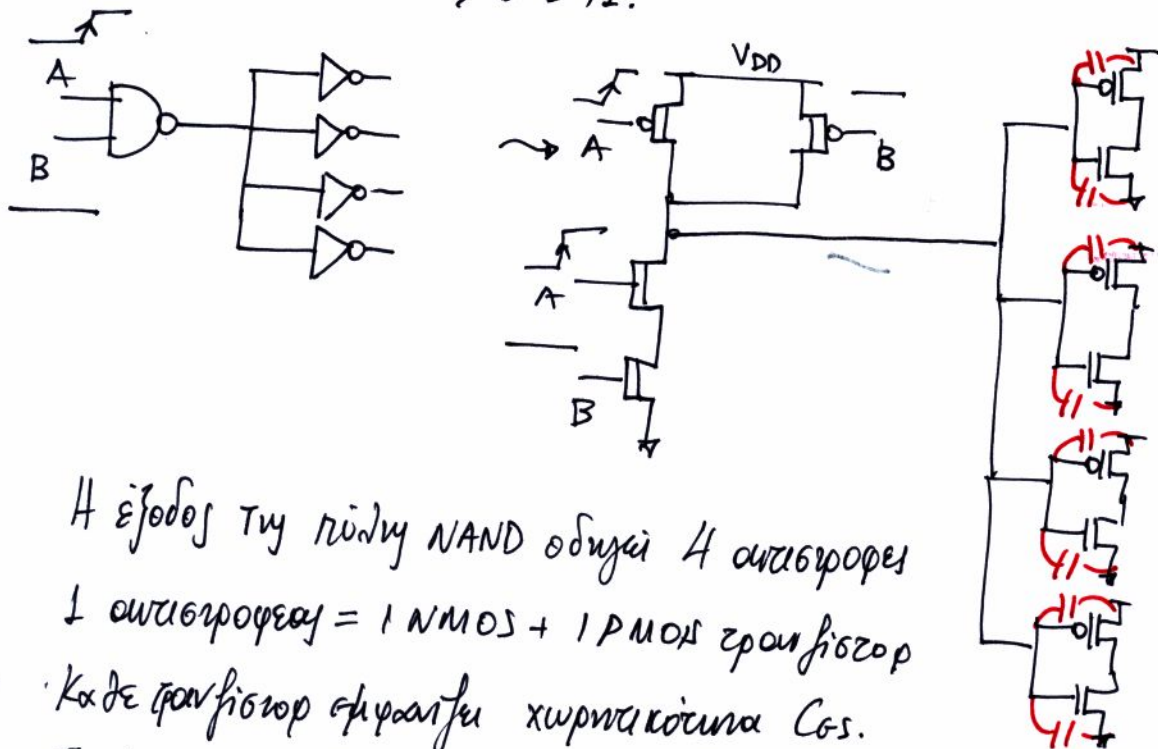 A
B
V_DD
A
B
A
B
Η έξοδος της πύλης NAND οδηγεί 4 αντιστροφείς
1 αντιστροφέας = 1 NMOS + 1 PMOS τρανζίστορ
Κάθε τρανζίστορ εμφανίζει χωρητικότητα C_GS.